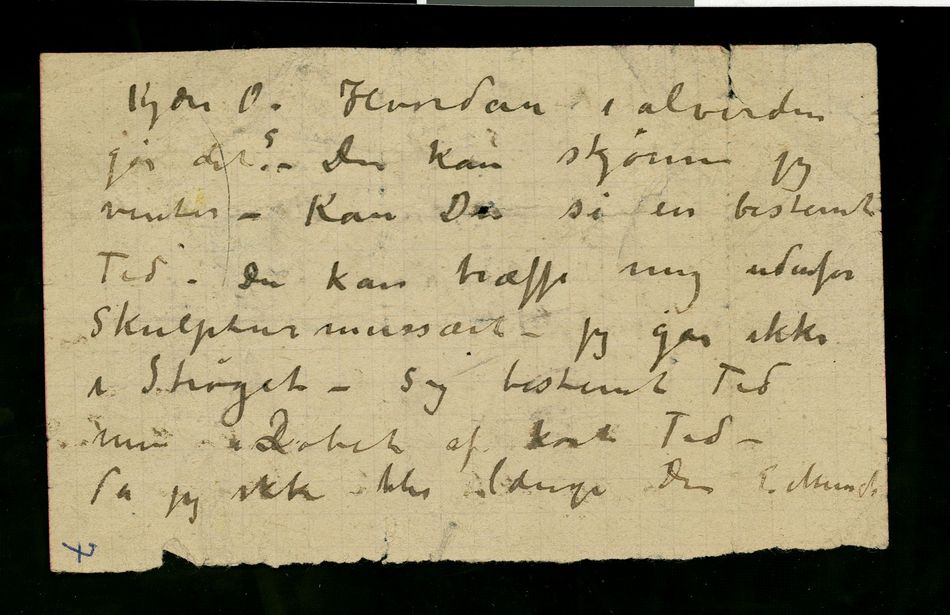 Kjære O. Hvordan i alverden
går det? – Du kan skjønne jeg
venter – Kan Du si en bestemt
Tid – Du kan træffe mig udenfor
Skulpturmussæet – jeg går ikke
i Strøget – Sig bestemt Tid
men i Løbet af kort Tid –
da jeg ikke blir længe Din E. Munch
7